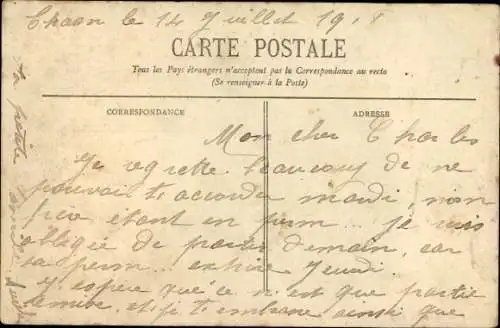 Thaon le 14 Juillet 191
CARTE POSTALE
Tous les Pays étrangers n'acceptent pas la Correspondance au recto
(Se renseigner à la Poste)
CORRESPONDANCE
ADRESSE
Mon cher Charles
Je regrette beaucoup de ne
pouvoir t'accorder mardi, mon
frère étant en perm... je suis
obligée de partir demain, car
sa perm... expire Jeudi.
J'espère que ce n'est que partie
remise, et je t'embrasse ainsi que
ta petite